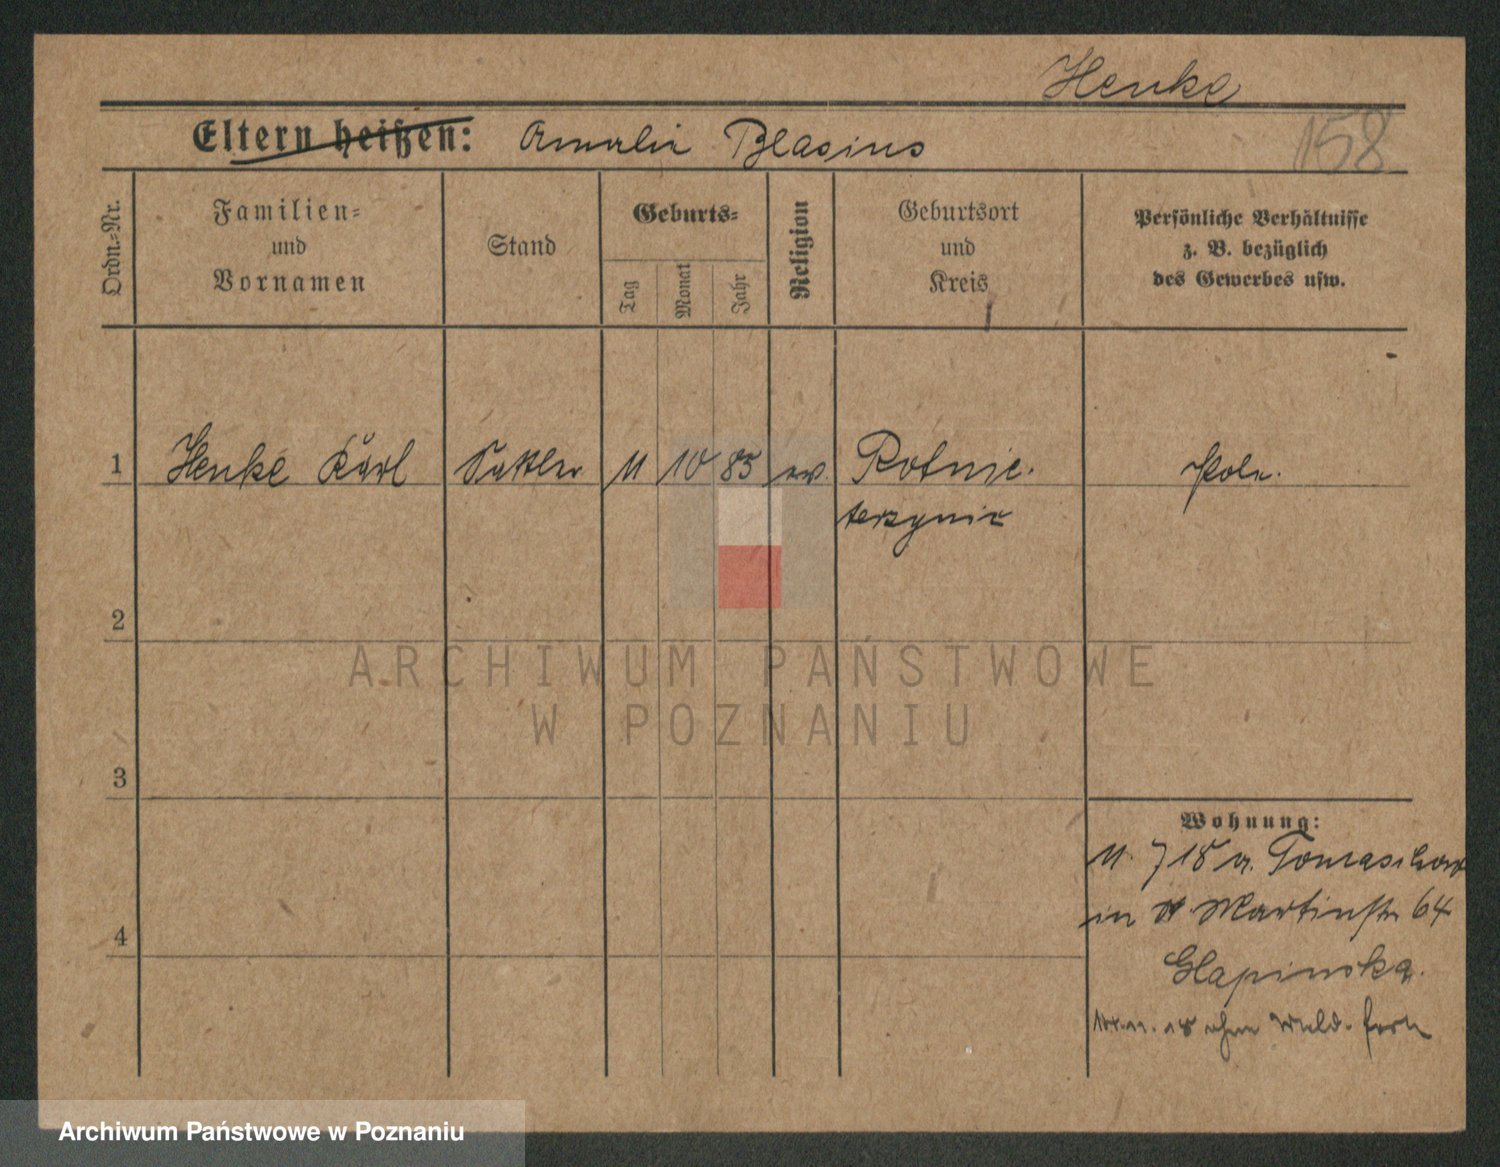 Henke
158
Eltern heißen: Amalie Blasius
Ordn.-Nr.
Familien-
und
Vornamen
Stand
Geburts-
Tag
Monat
Jahr
Religion
Geburtsort
und
Kreis
Persönliche Verhältnisse
z. B. bezüglich
des Gewerbes usw.
1 Henke Karl Sattler 11 10 85 ev. Pole.
2
ARCHIWUM PAŃSTWOWE
W POZNANIU
3
Wohnung:
11. 7 18 a.
in St. Martinstr 64
4
Glapinska.
18 ohne Meld. fort
Archiwum Państwowe w Poznaniu